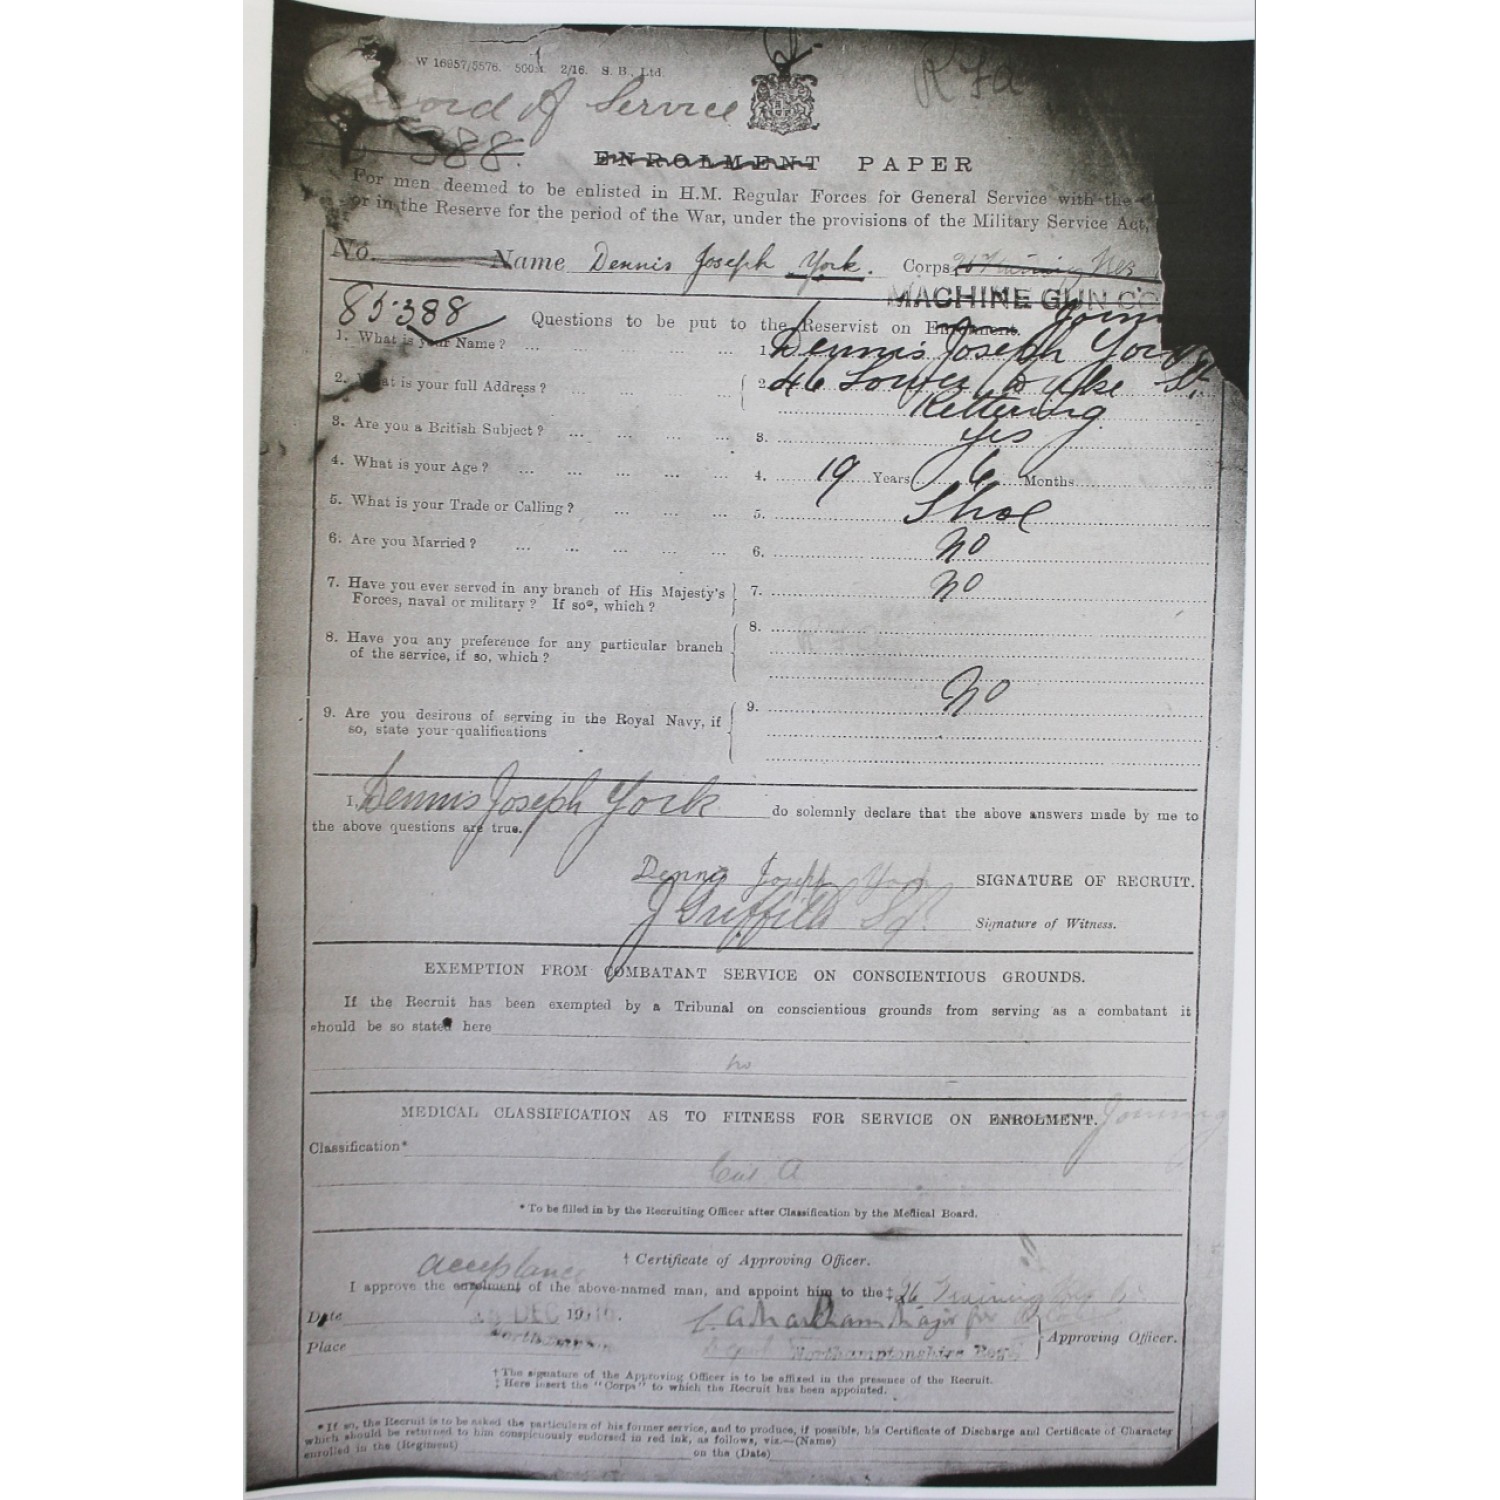 W 16957/5576. 500M 2/16. S. B., Ltd.
R F A
of Service
388.
ENROLMENT PAPER
For men deemed to be enlisted in H.M. Regular Forces for General Service with the
or in the Reserve for the period of the War, under the provisions of the Military Service Act,
No. Name Dennis Joseph York. Corps 26 Training Res
MACHINE GUN CO
85388 Questions to be put to the Reservist on Enrolment. Joining
1. What is your Name? ... 1. Dennis Joseph York
2. What is your full Address? ... 2. 46 Lower Duke St.
Kettering
3. Are you a British Subject? ... 3. Yes
4. What is your Age? ... 4. 19 Years 6 Months
5. What is your Trade or Calling? ... 5. Shoe
6. Are you Married? ... 6. No
7. Have you ever served in any branch of His Majesty's 7. No
Forces, naval or military? If so*, which?
8. Have you any preference for any particular branch 8.
of the service, if so, which?
9. Are you desirous of serving in the Royal Navy, if 9. No
so, state your qualifications
I, Dennis Joseph York do solemnly declare that the above answers made by me to
the above questions are true.
Dennis Joseph York SIGNATURE OF RECRUIT.
J Griffith Sgt Signature of Witness.
EXEMPTION FROM COMBATANT SERVICE ON CONSCIENTIOUS GROUNDS.
If the Recruit has been exempted by a Tribunal on conscientious grounds from serving as a combatant it
should be so stated here
no
MEDICAL CLASSIFICATION AS TO FITNESS FOR SERVICE ON ENROLMENT. Joining
Classification*
Cat A
* To be filled in by the Recruiting Officer after Classification by the Medical Board.
† Certificate of Approving Officer.
acceptance
I approve the enrolment of the above-named man, and appoint him to the ‡ 26 Training
Date DEC 1916. Markham Major for
Place Northampton Northamptonshire Regt } Approving Officer.
† The signature of the Approving Officer is to be affixed in the presence of the Recruit.
‡ Here insert the "Corps" to which the Recruit has been appointed.
* If so, the Recruit is to be asked the particulars of his former service, and to produce, if possible, his Certificate of Discharge and Certificate of Character
which should be returned to him conspicuously endorsed in red ink, as follows, viz.—(Name)
enrolled in the (Regiment) on the (Date)